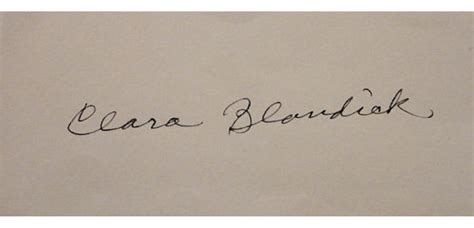 Clara Blandick